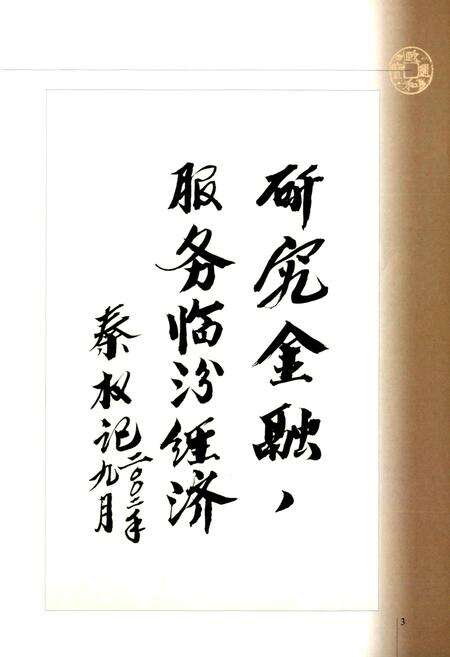 研究金融，
服务临汾经济
秦权记
二〇〇二年
九月
3